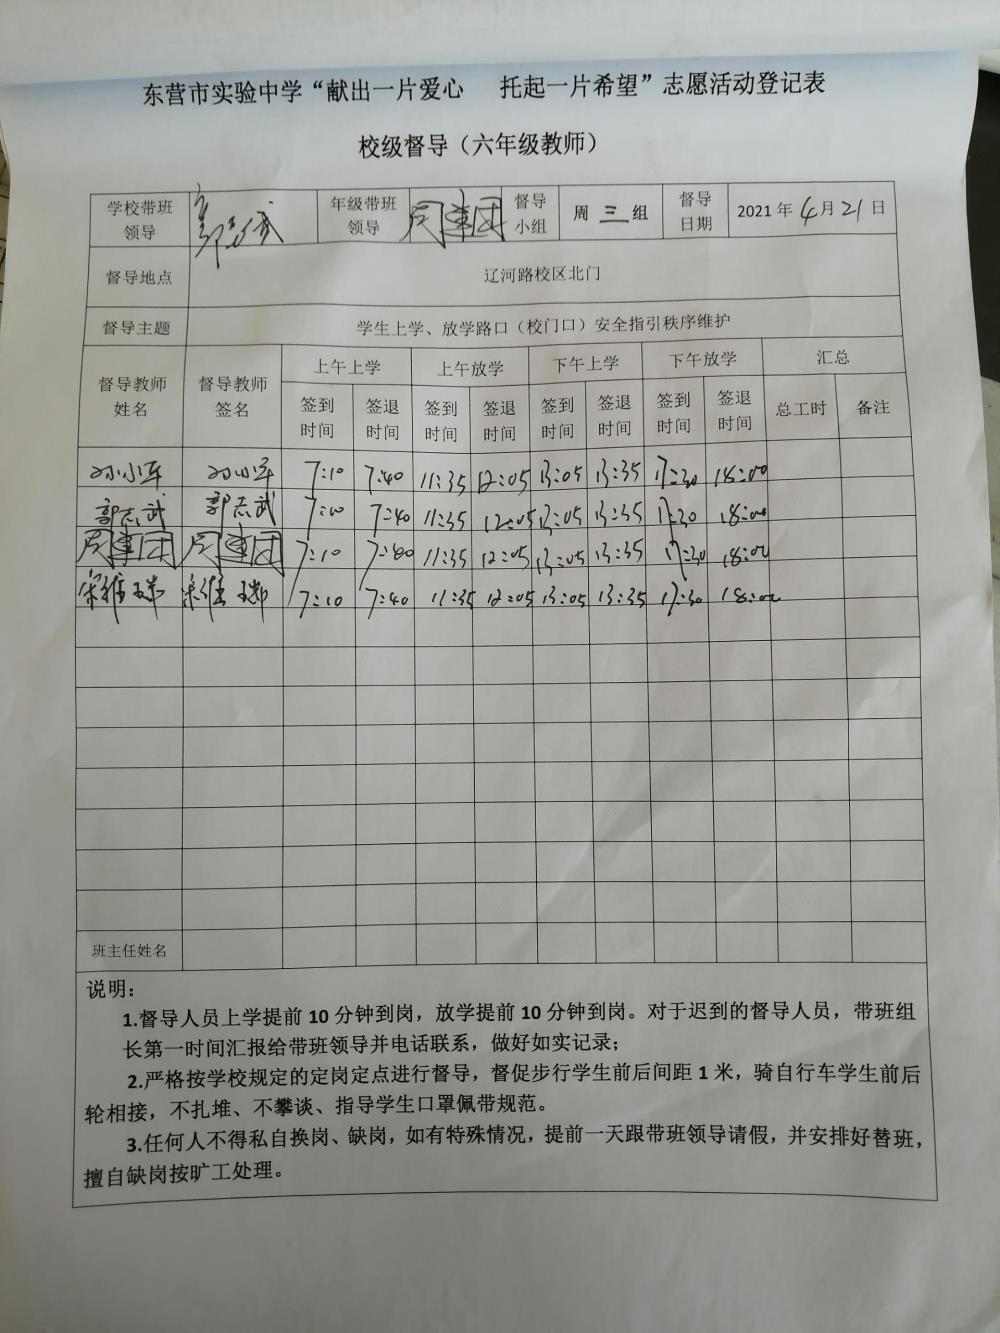 东营市实验中学“献出一片爱心 托起一片希望”志愿活动登记表
校级督导（六年级教师）
学校带班领导 年级带班领导 周建团 督导小组 周 三 组 督导日期 2021年4月21日
督导地点 辽河路校区北门
督导主题 学生上学、放学路口（校门口）安全指引秩序维护
督导教师姓名 督导教师签名 上午上学 上午放学 下午上学 下午放学 汇总
签到时间 签退时间 签到时间 签退时间 签到时间 签退时间 签到时间 签退时间 总工时 备注
孙小军 孙小军 7:10 7:40 11:35 12:05 13:05 13:35 17:30 18:00
郭志武 郭志武 7:10 7:40 11:35 12:05 13:05 13:35 17:30 18:00
周建团 周建团 7:10 7:40 11:35 12:05 13:05 13:35 17:30 18:00
7:10 7:40 11:35 12:05 13:05 13:35 17:30 18:00
班主任姓名
说明：
1.督导人员上学提前10分钟到岗，放学提前10分钟到岗。对于迟到的督导人员，带班组
长第一时间汇报给带班领导并电话联系，做好如实记录；
2.严格按学校规定的定岗定点进行督导，督促步行学生前后间距1米，骑自行车学生前后
轮相接，不扎堆、不攀谈、指导学生口罩佩带规范。
3.任何人不得私自换岗、缺岗，如有特殊情况，提前一天跟带班领导请假，并安排好替班，
擅自缺岗按旷工处理。